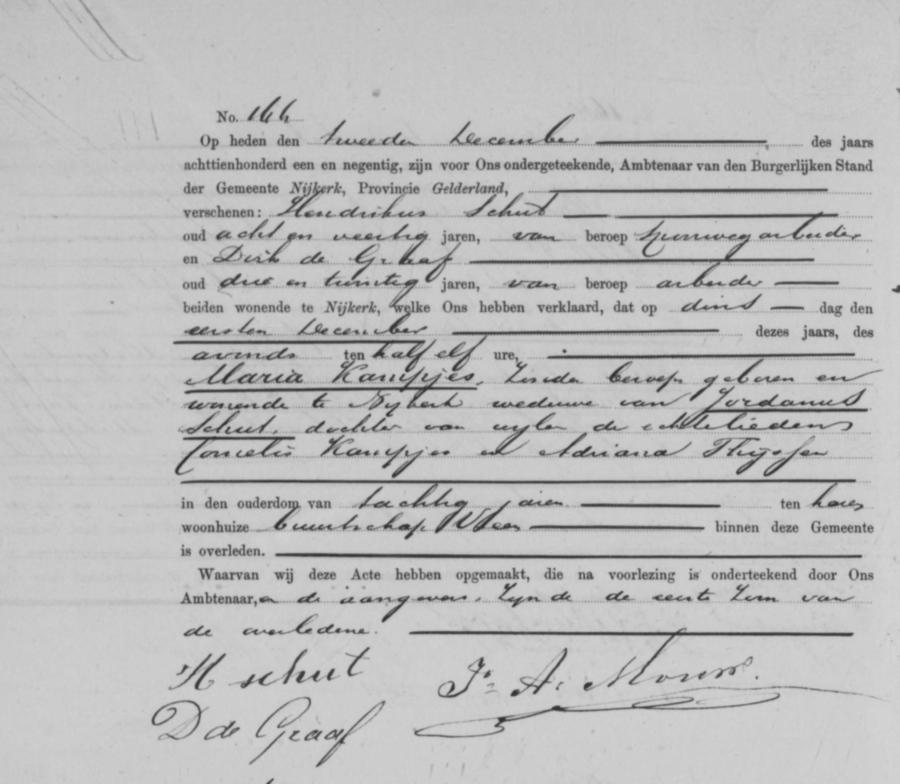 No. 166
Op heden den tweeden December, des jaars
achttienhonderd een en negentig, zijn voor Ons ondergeteekende, Ambtenaar van den Burgerlijken Stand
der Gemeente Nijkerk, Provincie Gelderland,
verschenen: Hendrikus Schut
oud acht en veertig jaren, van beroep spoorwegarbeider
en Dirk de Graaf
oud drie en twintig jaren, van beroep arbeider
beiden wonende te Nijkerk, welke Ons hebben verklaard, dat op dins dag den
eersten December dezes jaars, des
avonds ten half elf ure,
Maria Kampjes, zonder beroep geboren en
wonende te Nijkerk weduwe van Jordanus
Schut, dochter van wijlen de echtelieden
Cornelis Kampjes en Adriana Thijssen
in den ouderdom van tachtig jaren ten haren
woonhuize buurtschap binnen deze Gemeente
is overleden.
Waarvan wij deze Acte hebben opgemaakt, die na voorlezing is onderteekend door Ons
Ambtenaar, en de aangevers, zijnde de eerste zoon van
de overledene.
H schut
D de Graaf